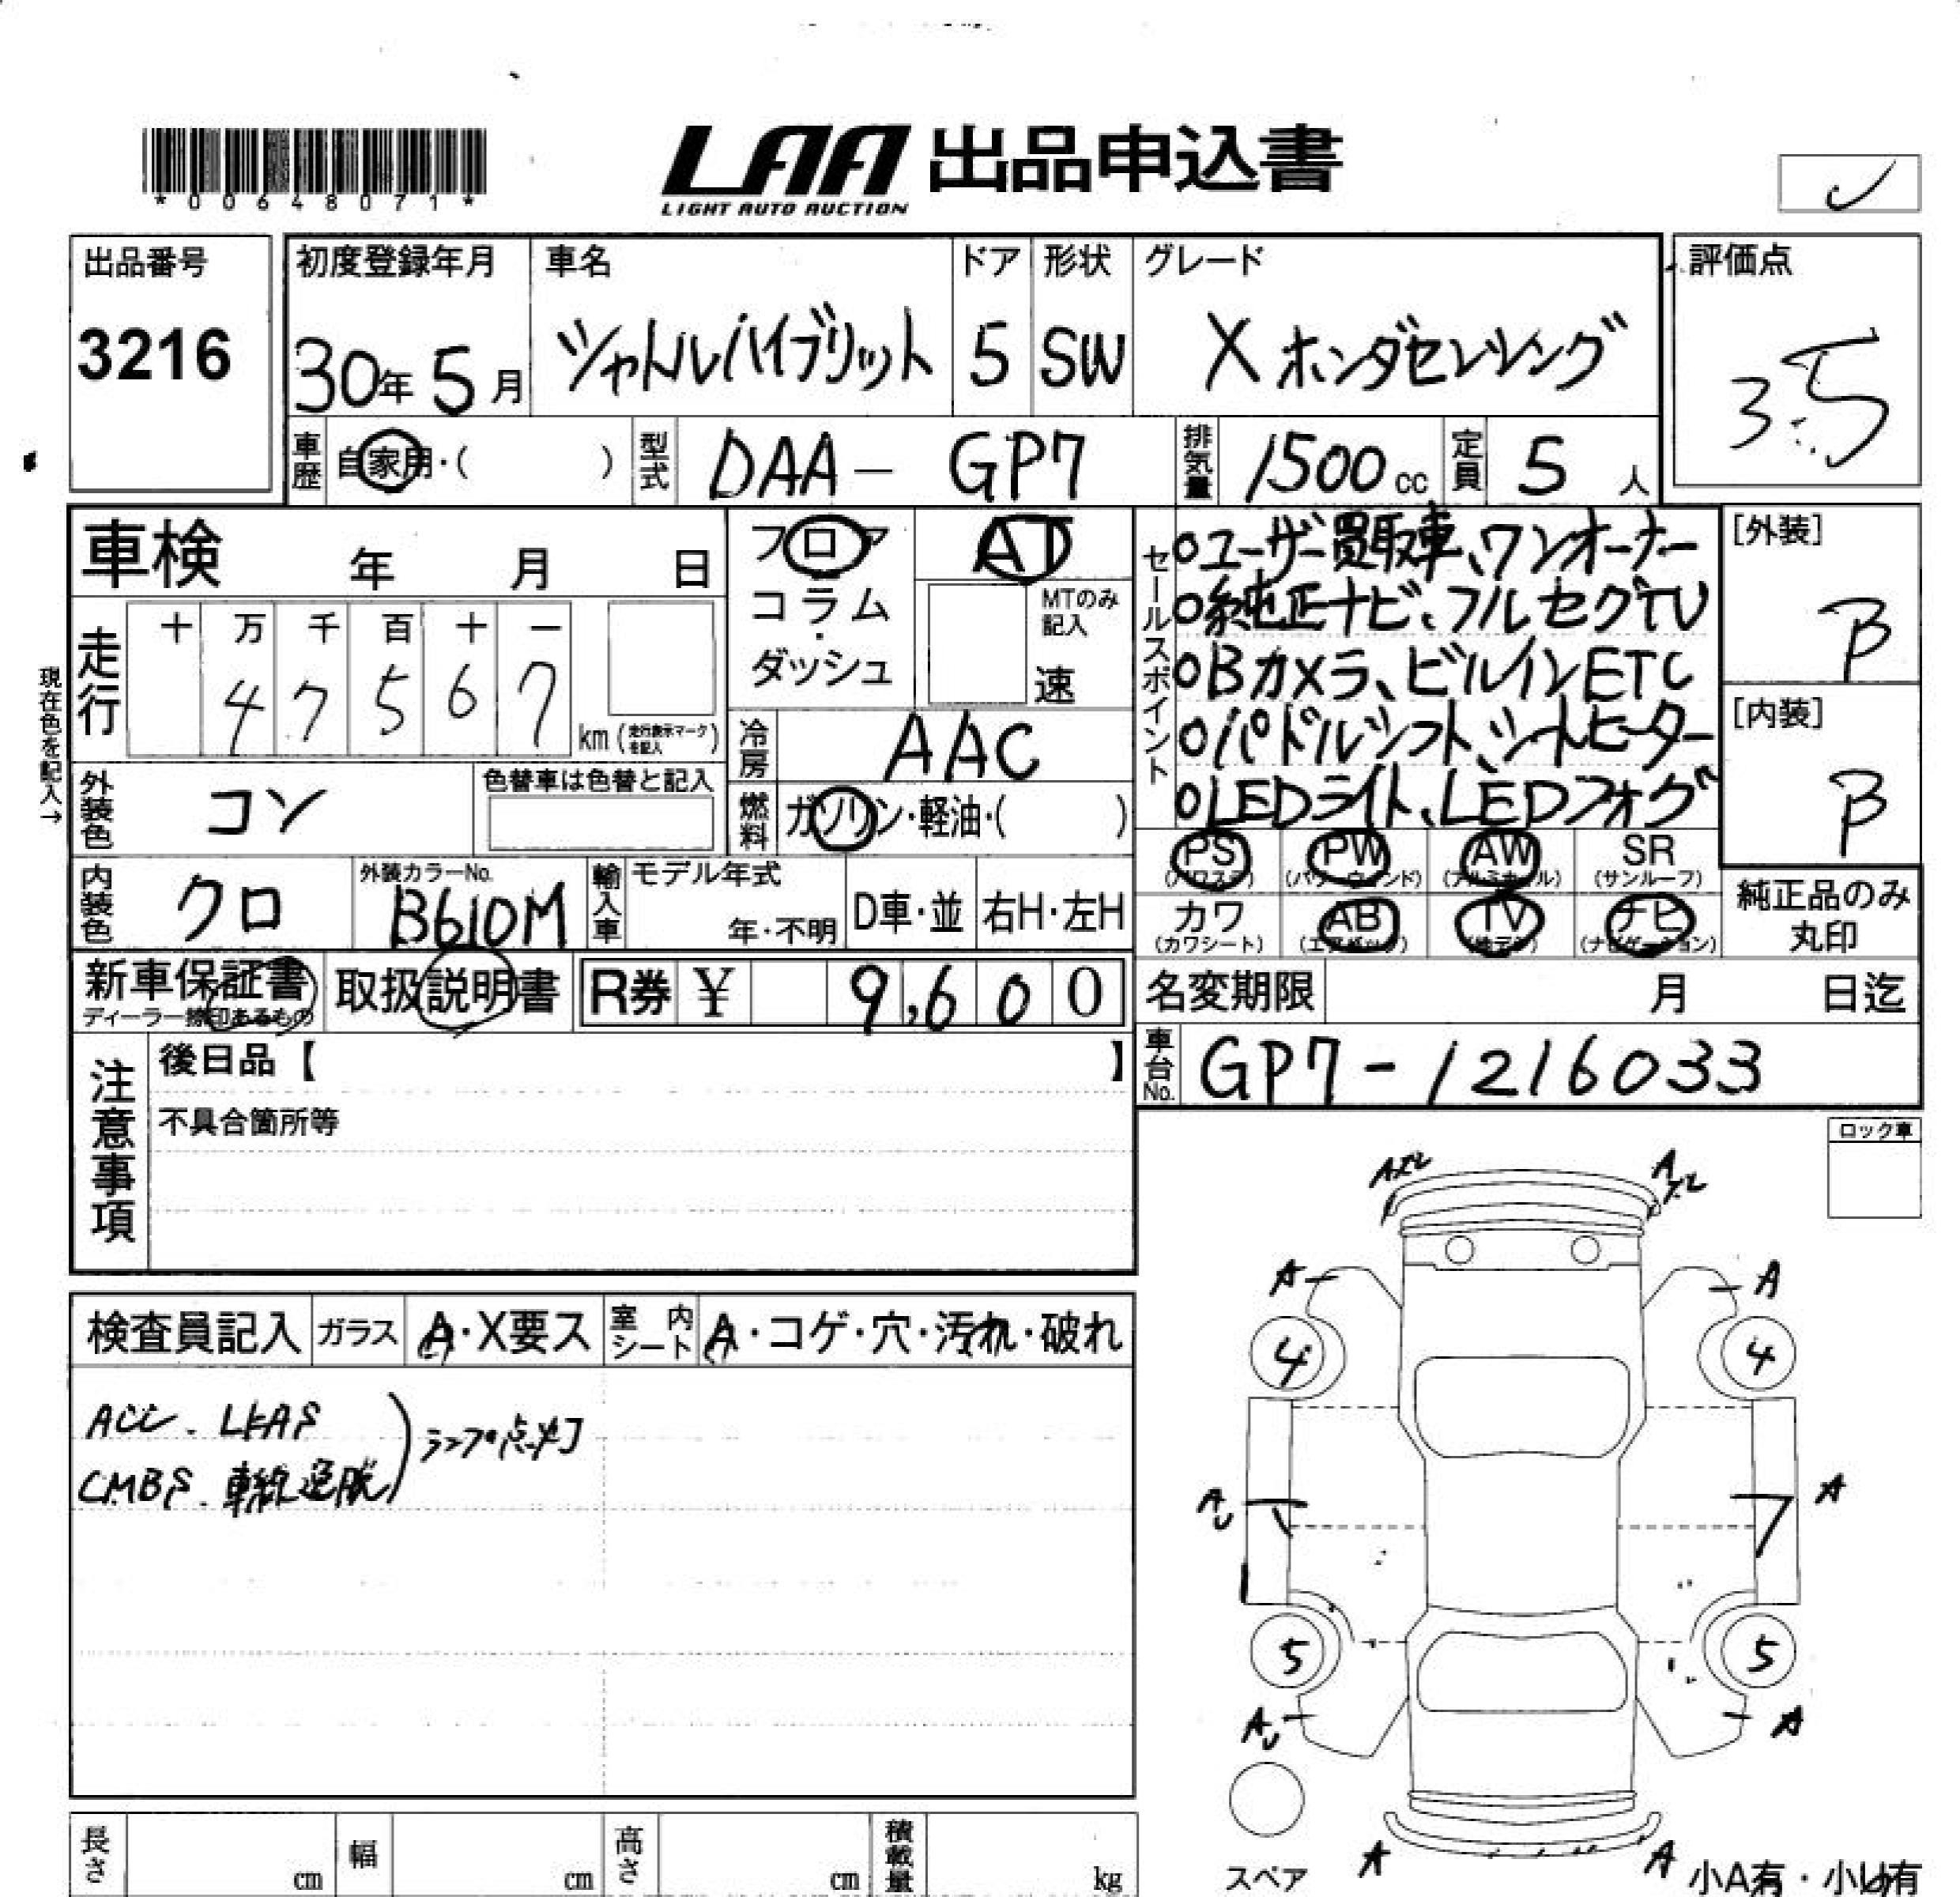 *00648071*
LAA 出品申込書
LIGHT AUTO AUCTION
出品番号
3216
初度登録年月
30年5月
車名
シャトルハイブリット
ドア
5
形状
SW
グレード
X ホンダセンシング
評価点
3.5
車歴
自家用・( )
型式
DAA- GP7
排気量
1500cc
定員
5人
車検 年 月 日
現在色を記入→
走行
十 万 千 百 十 一
4 7 5 6 7
km(走行表示マークを記入)
フロア
コラム
・
ダッシュ
AT
MTのみ
記入
速
冷房
AAC
燃料
ガソリン・軽油・( )
外装色
コン
色替車は色替と記入
内装色
クロ
外装カラーNo.
B610M
輸入車
モデル年式
年・不明
D車・並
右H・左H
セールスポイント
○ユーザー買取車、ワンオーナー
○純正ナビ、フルセグTV
○Bカメラ、ビルインETC
○パドルシフト、シートヒーター
○LEDライト、LEDフォグ
[外装]
B
[内装]
B
PS
(パワステ)
PW
(パワーウィンド)
AW
(アルミホイール)
SR
(サンルーフ)
カワ
(カワシート)
AB
(エアバック)
TV
(地デジ)
ナビ
(ナビゲーション)
純正品のみ
丸印
新車保証書
ディーラー捺印あるもの
取扱説明書
R券 ¥ 9,600
名変期限 月 日迄
車台No.
GP7-1216033
注意事項
後日品【 】
不具合箇所等
ロック車
検査員記入
ガラス
A・X要ス
室内シート
A・コゲ・穴・汚れ・破れ
ACC、LKAS
CMBS、車線逸脱
ランプ点灯
A
A
A
A
4
4
AU
A
5
5
AU
A
スペア
A
A
小A有・小U有
長さ cm
幅 cm
高さ cm
積載量 kg